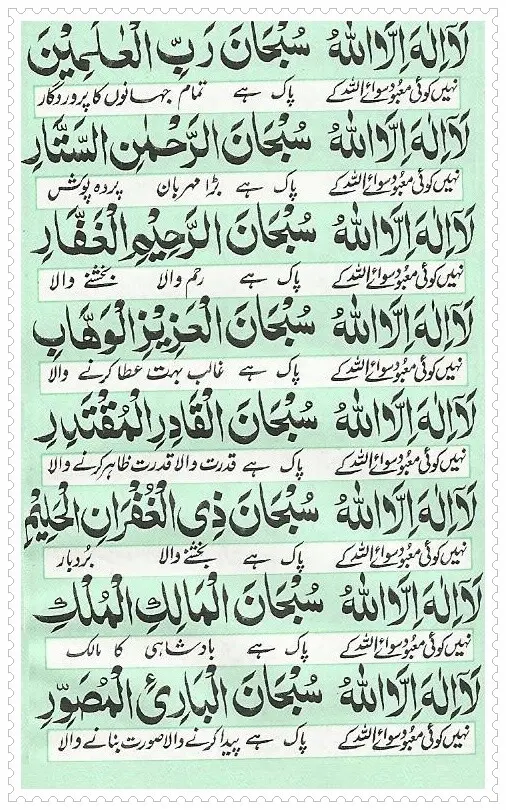 لَآ اِلٰهَ اِلَّا اللّٰهُ سُبْحَانَ رَبِّ الْعٰلَمِيْنَ
نہیں کوئی معبود سوائے اللہ کے پاک ہے تمام جہانوں کا پروردگار
لَآ اِلٰهَ اِلَّا اللّٰهُ سُبْحَانَ الرَّحْمٰنِ السَّتَّارِ
نہیں کوئی معبود سوائے اللہ کے پاک ہے بڑا مہربان پردہ پوش
لَآ اِلٰهَ اِلَّا اللّٰهُ سُبْحَانَ الرَّحِيْمِ الْغَفَّارِ
نہیں کوئی معبود سوائے اللہ کے پاک ہے رحم والا بخشنے والا
لَآ اِلٰهَ اِلَّا اللّٰهُ سُبْحَانَ الْعَزِيْزِ الْوَهَّابِ
نہیں کوئی معبود سوائے اللہ کے پاک ہے غالب بہت عطا کرنے والا
لَآ اِلٰهَ اِلَّا اللّٰهُ سُبْحَانَ الْقَادِرِ الْمُقْتَدِرِ
نہیں کوئی معبود سوائے اللہ کے پاک ہے قدرت والا قدرت ظاہر کرنے والا
لَآ اِلٰهَ اِلَّا اللّٰهُ سُبْحَانَ ذِی الْغُفْرَانِ الْحَلِيْمِ
نہیں کوئی معبود سوائے اللہ کے پاک ہے بخشنے والا بُردبار
لَآ اِلٰهَ اِلَّا اللّٰهُ سُبْحَانَ الْمَالِكِ الْمُلْكِ
نہیں کوئی معبود سوائے اللہ کے پاک ہے بادشاہی کا مالک
لَآ اِلٰهَ اِلَّا اللّٰهُ سُبْحَانَ الْبَارِئِ الْمُصَوِّرِ
نہیں کوئی معبود سوائے اللہ کے پاک ہے پیدا کرنے والا صورت بنانے والا